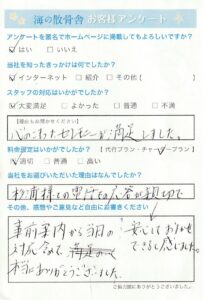 海の散骨舎 お客様アンケート
アンケートを匿名でホームページに掲載してもよろしいですか?
はい いいえ
当社を知ったきっかけは何でしたか?
インターネット 紹介 その他( )
お客様の満足度はいかがですか?
大変満足 よかった 普通 不満
理由もお聞かせください
セレモニーが満足しました。
料金設定はいかがでしたか? 【代行プラン・チャータープラン】
適切 普通 高い
当社をお選びいただいた理由はなんでしたか?
杉浦様との電話での応答が親切で
その他、感想やご意見など自由にお書きください
事前案内から当日の
対応含めて
本当にありがとうございました。
安心して
できると感じました。
ご協力誠にありがとうございました。